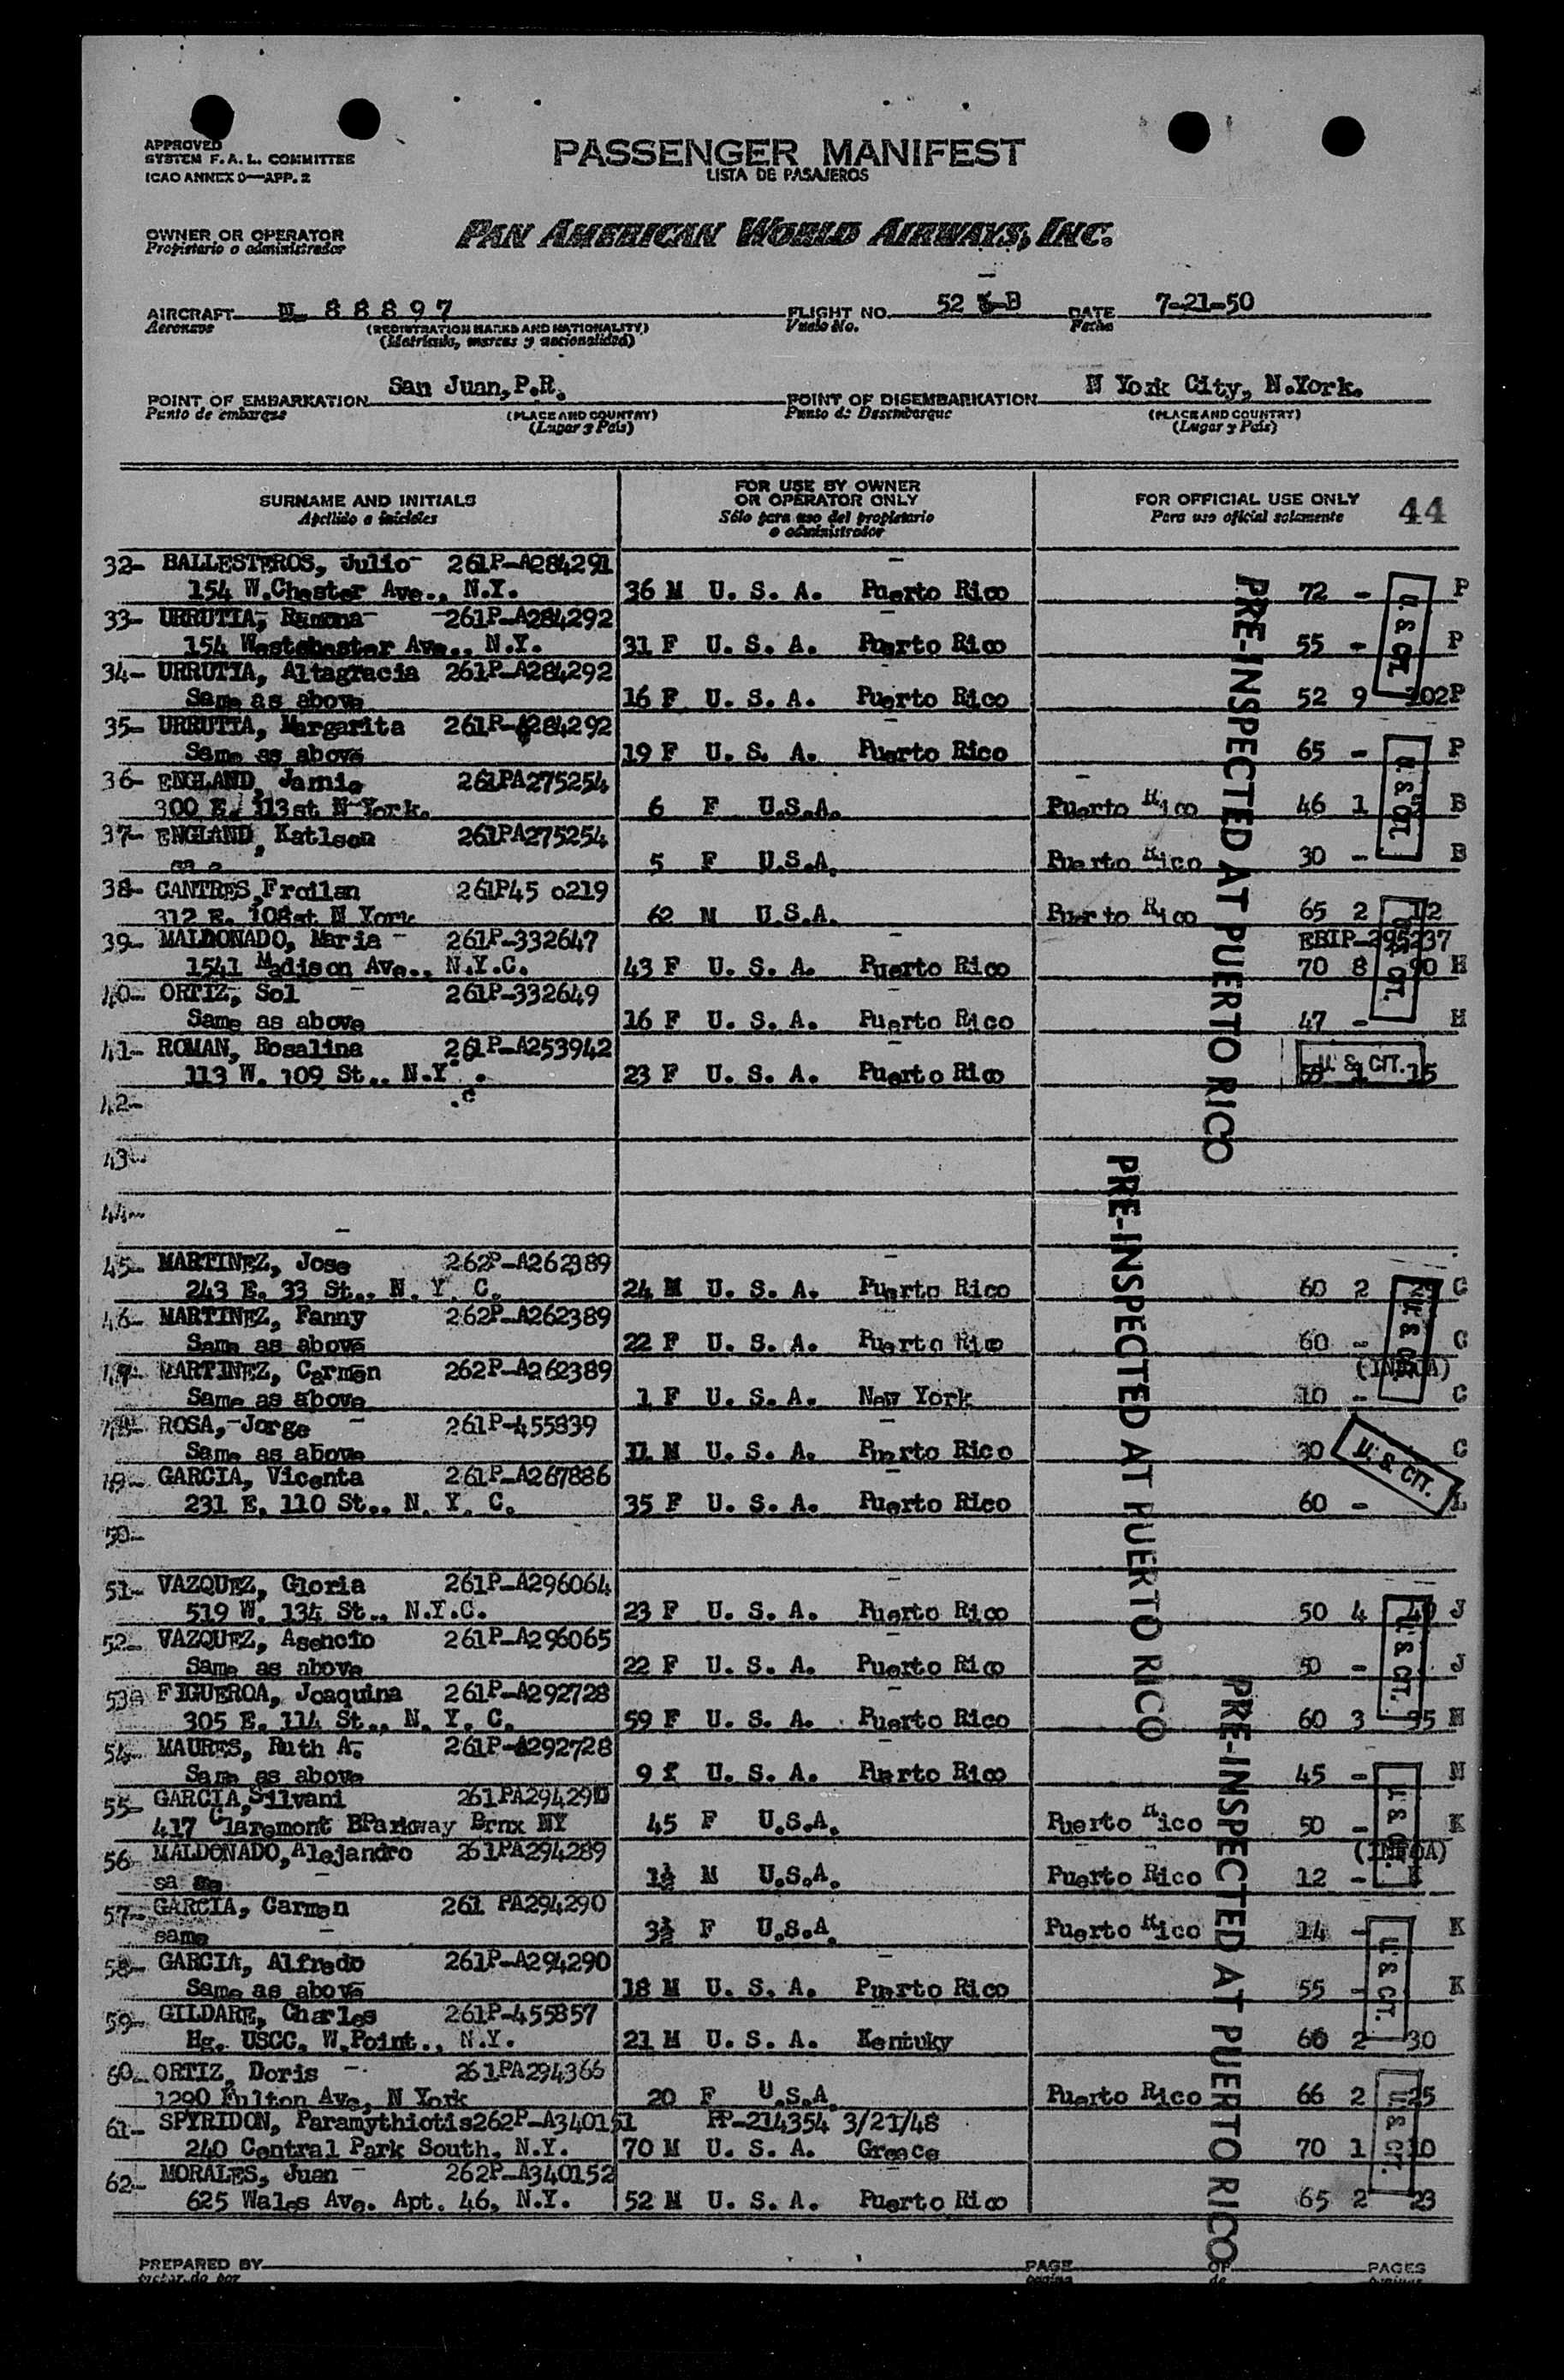 APPROVED
SYSTEM F. A. L. COMMITTEE
ICAO ANNEX 9—APP. 2
PASSENGER MANIFEST
LISTA DE PASAJEROS
OWNER OR OPERATOR
Propietario o administrador
PAN AMERICAN WORLD AIRWAYS, INC.
AIRCRAFT N 88897 FLIGHT NO. 52 -B DATE 7-21-50
Aeronave (REGISTRATION MARKS AND NATIONALITY) Vuelo No. Fecha
(Matricula, marcas y nacionalidad)
POINT OF EMBARKATION San Juan, P.R. POINT OF DISEMBARKATION N York City, N.York.
Punto de embarque (PLACE AND COUNTRY) Punto de Desembarque (PLACE AND COUNTRY)
(Lugar y País) (Lugar y País)
SURNAME AND INITIALS
Apellido e iniciales
FOR USE BY OWNER
OR OPERATOR ONLY
Sólo para uso del propietario
o administrador
FOR OFFICIAL USE ONLY
Para uso oficial solamente
44
32- BALLESTEROS, Julio 261P-A284291
154 W.Chester Ave., N.Y. 36 M U. S. A. Puerto Rico 72 - P
33- URRUTIA, Ramona 261P-A284292
154 Westchester Ave., N.Y. 31 F U. S. A. Puerto Rico 55 - P
34- URRUTIA, Altagracia 261P-A284292
Same as above 16 F U. S. A. Puerto Rico 52 9 302P
35- URRUTIA, Margarita 261P-A284292
Same as above 19 F U. S. A. Puerto Rico 65 - P
36- ENGLAND, Jamie 261PA275254
300 E. 113st N York. 6 F U.S.A. Puerto Rico 46 1 B
37- ENGLAND, Katleen 261PA275254
5 F U.S.A. Puerto Rico 30 - B
38- CANTRES, Froilan 261P45 0219
312 E. 108st N York 62 M U.S.A. Puerto Rico 65 2 12
39- MALDONADO, Maria 261P-332647 EBIP-295237
1541 Madison Ave., N.Y.C. 43 F U. S. A. Puerto Rico 70 8 90 H
40- ORTIZ, Sol 261P-332649
Same as above 16 F U. S. A. Puerto Rico 47 - H
41- ROMAN, Rosalina 261P-A253942
113 W. 109 St., N.Y. 23 F U. S. A. Puerto Rico 55 1 15
.c
42-
43-
44-
45- MARTINEZ, Jose 262P-A262389
243 E. 33 St., N. Y. C. 24 M U. S. A. Puerto Rico 60 2 C
46- MARTINEZ, Fanny 262P-A262389
Same as above 22 F U. S. A. Puerto Rico 60 - C
47- MARTINEZ, Carmen 262P-A262389
Same as above 1 F U. S. A. New York 10 - C
48- ROSA, Jorge 261P-455839
Same as above 11 M U. S. A. Puerto Rico 30 C
49- GARCIA, Vicenta 261P-A267886
231 E. 110 St., N. Y. C. 35 F U. S. A. Puerto Rico 60 - L
50-
51- VAZQUEZ, Gloria 261P-A296064
519 W. 134 St., N.Y.C. 23 F U. S. A. Puerto Rico 50 4 40 J
52- VAZQUEZ, Asencio 261P-A296065
Same as above 22 F U. S. A. Puerto Rico 50 - J
53- FIGUEROA, Joaquina 261P-A292728
305 E. 114 St., N. Y. C. 59 F U. S. A. Puerto Rico 60 3 55 M
54- MAURES, Ruth A. 261P-A292728
Same as above 9 f U. S. A. Puerto Rico 45 - M
55- GARCIA, Silvani 261PA294290
417 Claremont BParkway Brnx NY 45 F U.S.A. Puerto Rico 50 - K
56- MALDONADO, Alejandro 261PA294289
sa me 1½ M U.S.A. Puerto Rico 12 -
57- GARCIA, Carmen 261 PA294290
same 3½ F U.S.A. Puerto Rico 14 - K
58- GARCIA, Alfredo 261P-A294290
Same as above 18 M U. S. A. Puerto Rico 55 - K
59- GILDARE, Charles 261P-455857
Hg. USCC, W.Point., N.Y. 21 M U. S. A. Kentuky 60 2 30
60- ORTIZ, Doris 261PA294366
1290 Fulton Ave, N York 20 F U.S.A. Puerto Rico 66 2 25
61- SPYRIDON, Paramythiotis 262P-A340151 PP-214354 3/21/48
240 Central Park South, N.Y. 70 M U. S. A. Greece 70 1 10
62- MORALES, Juan 262P-A340152
625 Wales Ave. Apt. 46, N.Y. 52 M U. S. A. Puerto Rico 65 2 23
PRE-INSPECTED AT PUERTO RICO
PRE-INSPECTED AT PUERTO RICO
PRE-INSPECTED AT PUERTO RICO
U. S. CIT.
U. S. CIT.
U. S. CIT.
U. S. CIT.
U. S. CIT.
U. S. CIT.
U. S. CIT.
U. S. CIT.
U. S. CIT.
U. S. CIT.
PREPARED BY PAGE OF PAGES